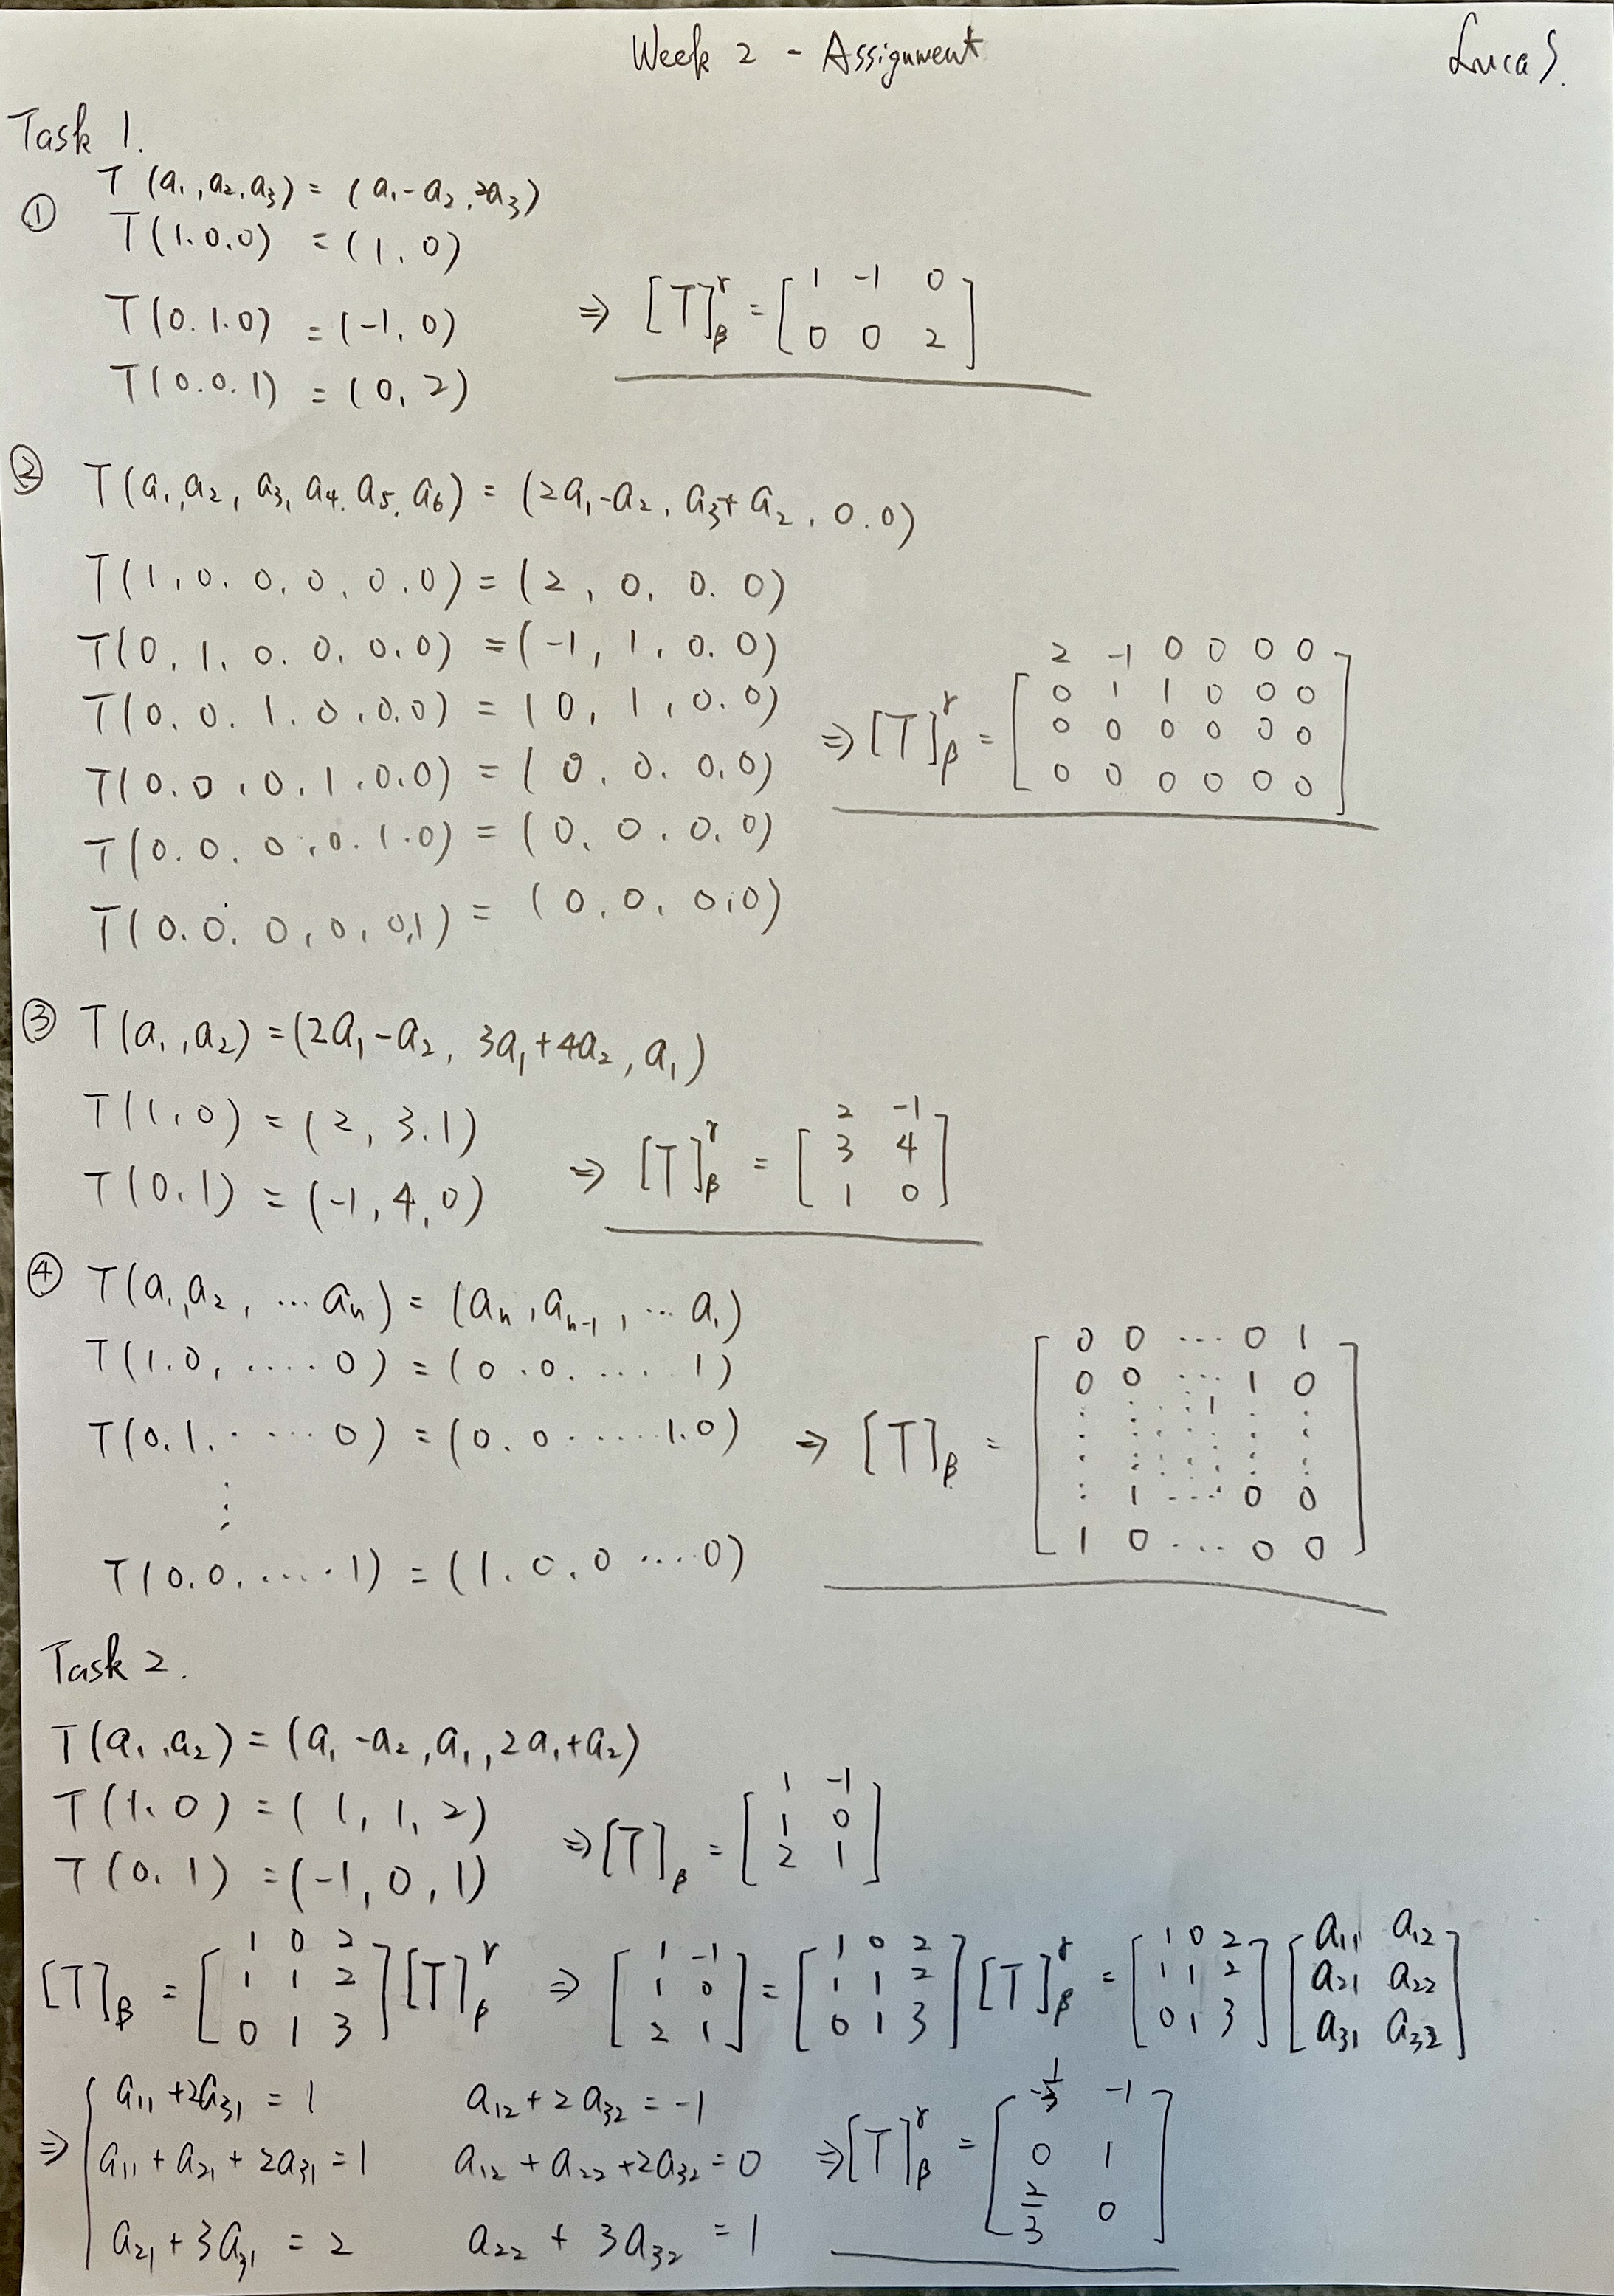 Week 2 - Assignment
Lucas.
Task 1.
① T(a₁, a₂, a₃) = (a₁ - a₂, 2a₃)
T(1.0.0) = (1, 0)
T(0.1.0) = (-1, 0)
T(0.0.1) = (0, 2)
⇒ [T]ᵧᵦ = [1 -1 0
0 0 2]
② T(a₁, a₂, a₃, a₄, a₅, a₆) = (2a₁ - a₂, a₃ + a₂, 0.0)
T(1, 0. 0. 0. 0. 0) = (2, 0. 0. 0)
T(0, 1. 0. 0. 0. 0) = (-1, 1, 0. 0)
T(0. 0. 1. 0. 0. 0) = (0, 1, 0. 0)
T(0. 0. 0. 1. 0. 0) = (0. 0. 0. 0)
T(0. 0. 0. 0. 1. 0) = (0. 0. 0. 0)
T(0. 0. 0, 0, 0, 1) = (0. 0. 0, 0)
⇒ [T]ᵧᵦ = [2 -1 0 0 0 0
0 1 1 0 0 0
0 0 0 0 0 0
0 0 0 0 0 0]
③ T(a₁, a₂) = (2a₁ - a₂, 3a₁ + 4a₂, a₁)
T(1, 0) = (2, 3. 1)
T(0. 1) = (-1, 4, 0)
⇒ [T]ᵧᵦ = [2 -1
3 4
1 0]
④ T(a₁, a₂, ... aₙ) = (aₙ, aₙ₋₁, ... a₁)
T(1. 0, .... 0) = (0. 0. .... 1)
T(0. 1. .... 0) = (0. 0 ..... 1. 0)
⋮
T(0. 0. ..... 1) = (1. 0. 0 .... 0)
⇒ [T]ᵦ = [0 0 ... 0 1
0 0 ... 1 0
: : . 1 . :
: 1 ... 0 0
1 0 ... 0 0]
Task 2.
T(a₁, a₂) = (a₁ - a₂, a₁, 2a₁ + a₂)
T(1. 0) = (1, 1, 2)
T(0. 1) = (-1, 0, 1)
⇒ [T]ᵦ = [1 -1
1 0
2 1]
[T]ᵦ = [1 0 2
1 1 2
0 1 3] [T]ᵧᵦ ⇒ [1 -1
1 0
2 1] = [1 0 2
1 1 2
0 1 3] [T]ᵧᵦ = [1 0 2
1 1 2
0 1 3] [a₁₁ a₁₂
a₂₁ a₂₂
a₃₁ a₃₂]
⇒ { a₁₁ + 2a₃₁ = 1 a₁₂ + 2a₃₂ = -1
a₁₁ + a₂₁ + 2a₃₁ = 1 a₁₂ + a₂₂ + 2a₃₂ = 0
a₂₁ + 3a₃₁ = 2 a₂₂ + 3a₃₂ = 1
⇒ [T]ᵧᵦ = [-1/3 -1
0 1
2/3 0]